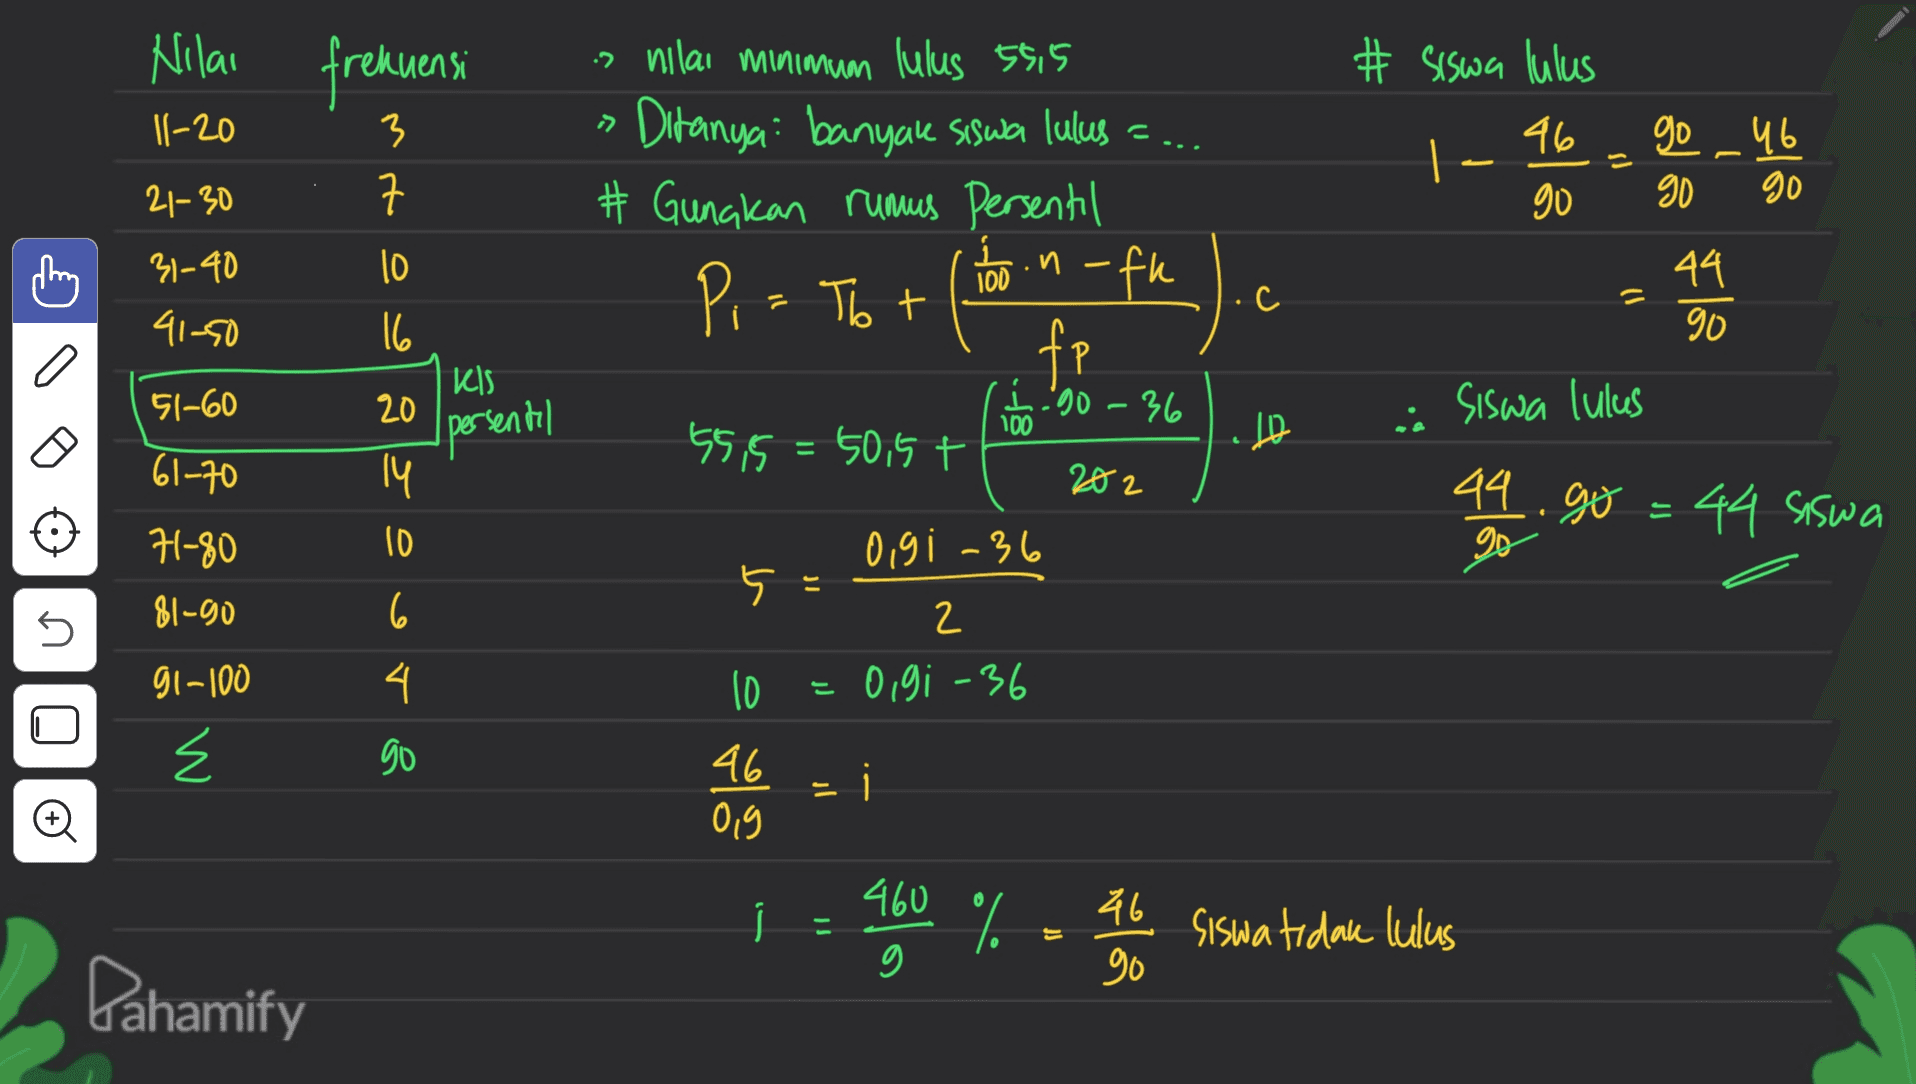 Nilai frekuensi
11-20 3
21-30 7
31-40 10
41-50 16
51-60 20 kls persentil
61-70 14
71-80 10
81-90 6
91-100 4
Σ 90
» nilai minimum lulus 55,5
» Ditanya: banyak siswa lulus = ...
# Gunakan rumus Persentil
Pi = Tb + ( i/100 . n - fk / fp ) . c
55,5 = 50,5 + ( i/100 . 90 - 36 / 20 2 ) . 10
5 = 0,9i - 36 / 2
10 = 0,9i - 36
46/0,9 = i
i = 460/9 % = 46/90 siswa tidak lulus
# siswa lulus
1 - 46/90 = 90/90 - 46/90
= 44/90
∴ siswa lulus
44/90 . 90 = 44 siswa
Pahamify